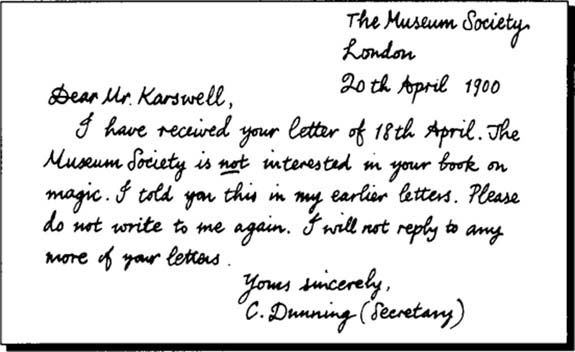 The Museum Society
London
20th April 1900
Dear Mr. Karswell,
I have received your letter of 18th April. The
Museum Society is not interested in your book on
magic. I told you this in my earlier letters. Please
do not write to me again. I will not reply to any
more of your letters.
Yours sincerely,
C. Dunning (Secretary)